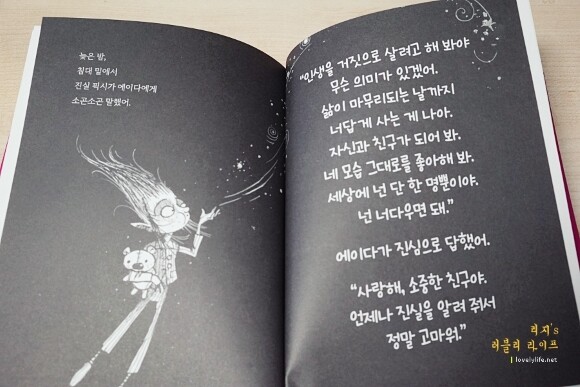 늦은 밤,
침대 밑에서
진실 픽시가 에이다에게
소곤소곤 말했어,
"인생을 거짓으로 살려고 해 봐야
무슨 의미가 있겠어.
삶이 마무리되는 날까지
너답게 사는 게 나아.
자신과 친구가 되어 봐.
네 모습 그대로를 좋아해 봐.
세상에 넌 단 한 명뿐이야.
넌 너다우면 돼."
에이다가 진심으로 답했어.
"사랑해, 소중한 친구야.
언제나 진실을 알려 줘서
정말 고마워."
리지's
러블리 라이프
lovelylife.net